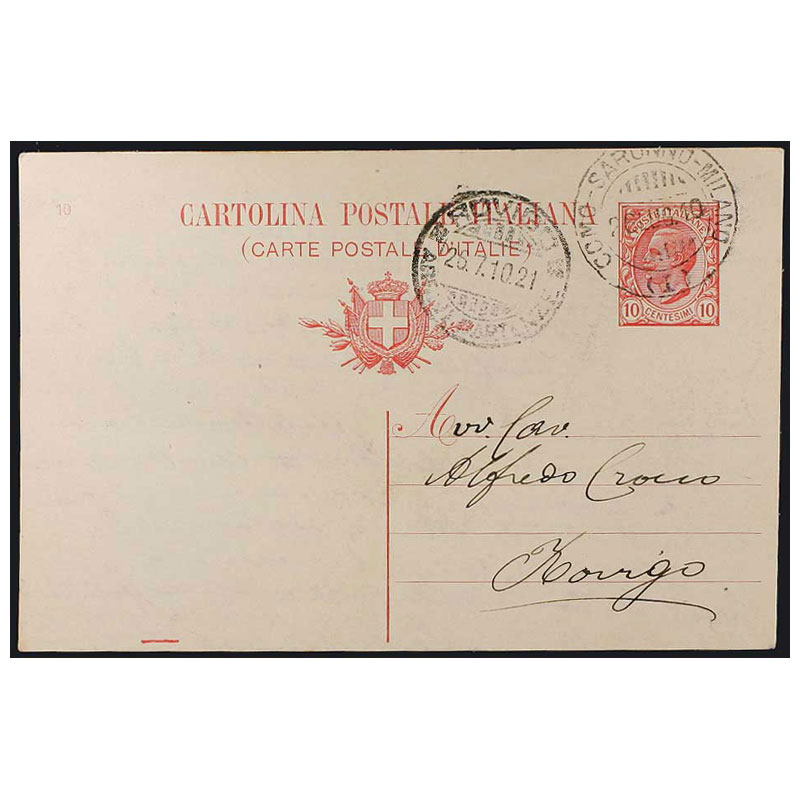 10
CARTOLINA POSTALE ITALIANA
(CARTE POSTALE D'ITALIE)
COMO-SARONNO-MILANO
(1)
ROVIGO
25.7.10.21
POSTE ITALIANE
10 CENTESIMI 10
Avv. Cav.
Alfredo Crocco
Rovigo